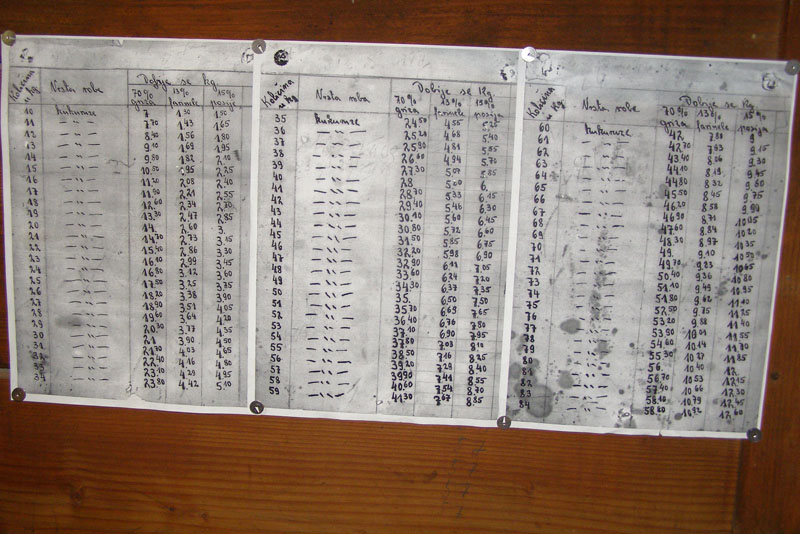 Količina u kg Vrsta robe Dobije se kg
70% griza 13% farinele 15% posije
10 kukuruze 7 1.30 1.50
11 — ,, — 7.70 1.43 1.65
12 — ,, — 8.40 1.56 1.80
13 — ,, — 9.10 1.69 1.95
14 — ,, — 9.80 1.82 2.10
15 — ,, — 10.50 1.95 2.25
16 — ,, — 11.20 2.08 2.40
17 — ,, — 11.90 2.21 2.55
18 — ,, — 12.60 2.34 2.70
19 — ,, — 13.30 2.47 2.85
20 — ,, — 14. 2.60 3.
21 — ,, — 14.70 2.73 3.15
22 — ,, — 15.40 2.86 3.30
23 — ,, — 16.10 2.99 3.45
24 — ,, — 16.80 3.12 3.60
25 — ,, — 17.50 3.25 3.75
26 — ,, — 18.20 3.38 3.90
27 — ,, — 18.90 3.51 4.05
28 — ,, — 19.60 3.64 4.20
29 — ,, — 20.30 3.77 4.35
30 — ,, — 21 3.90 4.50
31 — ,, — 21.70 4.03 4.65
32 — ,, — 22.40 4.16 4.80
33 — ,, — 23.10 4.29 4.95
34 — ,, — 23.80 4.42 5.10
Količina u kg Vrsta roba Dobije se kg.
70% griza 13% farinele 15% posija
35 kukuruze 24.50 4.55 5.25
36 — ,, — 25.20 4.68 5.40
37 — ,, — 25.90 4.81 5.55
38 — ,, — 26.60 4.94 5.70
39 — ,, — 27.30 5.07 5.85
40 — ,, — 28 5.20 6.
41 — ,, — 28.70 5.33 6.15
42 — ,, — 29.40 5.46 6.30
43 — ,, — 30.10 5.60 6.45
44 — ,, — 30.80 5.72 6.60
45 — ,, — 31.50 5.85 6.75
46 — ,, — 32.20 5.98 6.90
47 — ,, — 32.90 6.11 7.05
48 — ,, — 33.60 6.24 7.20
49 — ,, — 34.30 6.37 7.35
50 — ,, — 35. 6.50 7.50
51 — ,, — 35.70 6.63 7.65
52 — ,, — 36.40 6.76 7.80
53 — ,, — 37.10 6.90 7.95
54 — ,, — 37.80 7.03 8.10
55 — ,, — 38.50 7.16 8.25
56 — ,, — 39.20 7.29 8.40
57 — ,, — 39.90 7.41 8.55
58 — ,, — 40.60 7.54 8.70
59 — ,, — 41.30 7.67 8.85
Količina u kg Vrsta robe Dobije se kg.
70% griza 13% farinele 15% posija
60 kukuruze 42. 7.80 9
61 — ,, — 42.70 7.93 9.15
62 — ,, — 43.40 8.06 9.30
63 — ,, — 44.10 8.19 9.45
64 — ,, — 44.80 8.32 9.60
65 — ,, — 45.50 8.45 9.75
66 — ,, — 46.20 8.58 9.94
67 — ,, — 46.90 8.71 10.05
68 — ,, — 47.60 8.84 10.20
69 — ,, — 48.30 8.97 10.35
70 — ,, — 49. 9.10 10.50
71 — ,, — 49.70 9.23 10.65
72 — ,, — 50.40 9.36 10.80
73 — ,, — 51.10 9.49 10.95
74 — ,, — 51.80 9.62 11.10
75 — ,, — 52.50 9.75 11.25
76 — ,, — 53.20 9.88 11.40
77 — ,, — 53.90 10.01 11.55
78 — ,, — 54.60 10.14 11.70
79 — ,, — 55.30 10.27 11.85
80 — ,, — 56. 10.40 12
81 — ,, — 56.70 10.53 12.15
82 — ,, — 57.40 10.66 12.30
83 — ,, — 58.10 10.79 12.45
84 — ,, — 58.80 10.92 12.60